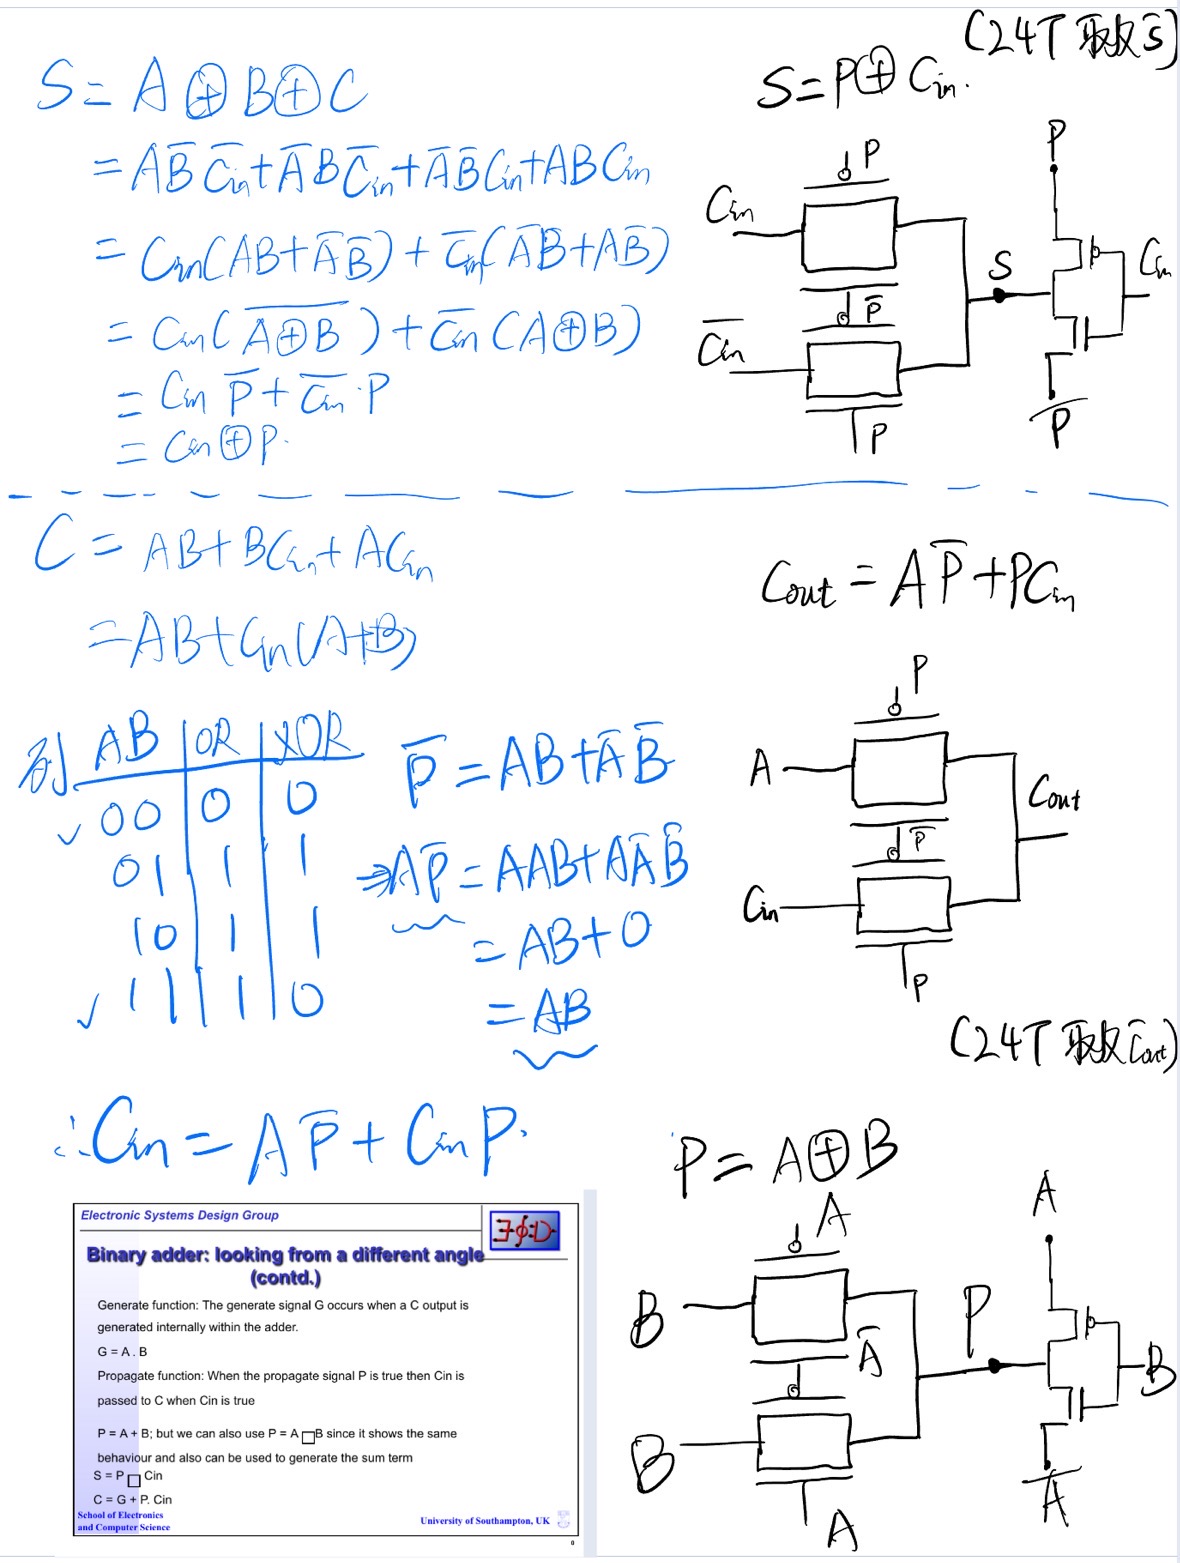 S = A ⊕ B ⊕ C
= AB̅C̅in + A̅BC̅in + A̅B̅Cin + ABCin
= Cin(AB + A̅B̅) + C̅in(A̅B + AB̅)
= Cin(A̅⊕̅B̅) + C̅in(A⊕B)
= Cin P̅ + C̅in · P
= Cin ⊕ P.
(24T 取反 S̅)
S = P ⊕ Cin.
P
Cin
P̅
C̅in
P
S
P
Cin
P̅
C = AB + BCin + ACin
= AB + Cin(A+B)
列 AB | OR | XOR
✓ 00 | 0 | 0
01 | 1 | 1
10 | 1 | 1
✓ 11 | 1 | 0
P̅ = AB + A̅B̅
⇒ AP̅ = AAB + AA̅B̅
= AB + 0
= AB
∴ Cin = AP̅ + CinP.
Cout = AP̅ + PCin
P
A
P̅
Cin
P
Cout
(24T 取反 C̅out)
P = A ⊕ B
A
B
A̅
B
A
P
A
B
A̅
Electronic Systems Design Group
Binary adder: looking from a different angle
(contd.)
Generate function: The generate signal G occurs when a C output is
generated internally within the adder.
G = A . B
Propagate function: When the propagate signal P is true then Cin is
passed to C when Cin is true
P = A + B; but we can also use P = A □B since it shows the same
behaviour and also can be used to generate the sum term
S = P □ Cin
C = G + P. Cin
School of Electronics
and Computer Science
University of Southampton, UK
0